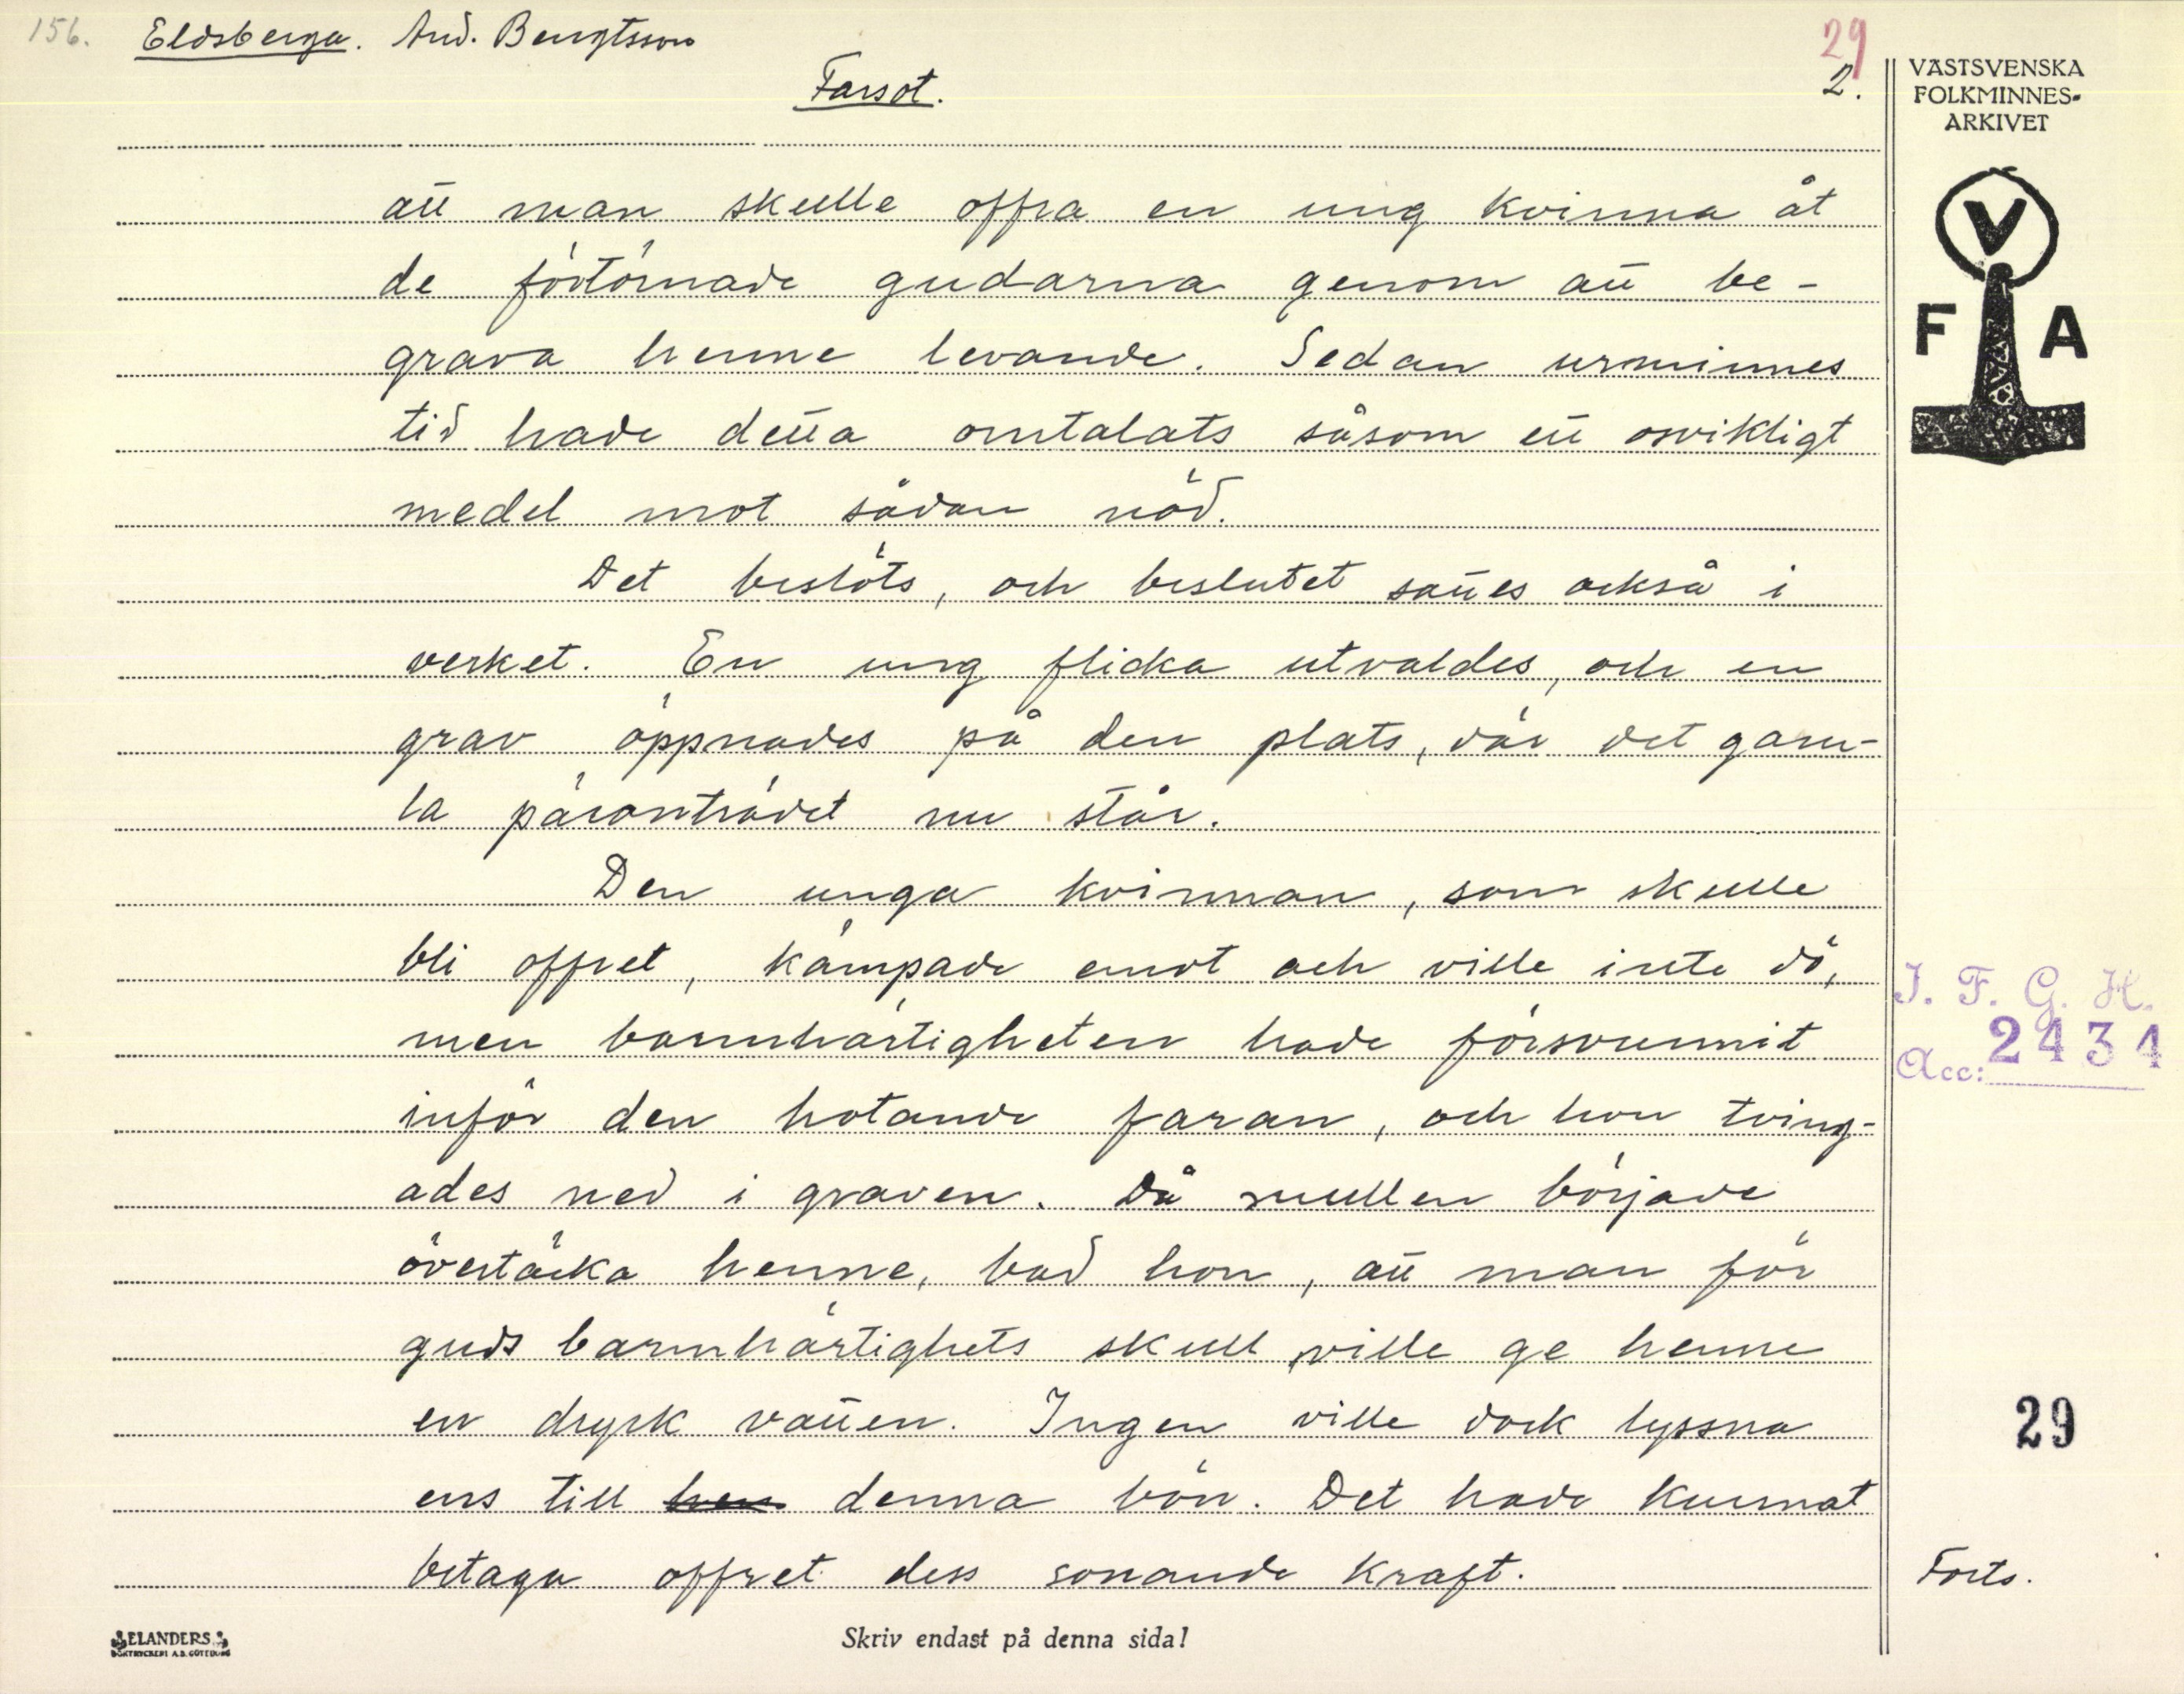 156. Eldsberga. And. Bengtsson
29
Farsot.
2.
VÄSTSVENSKA
FOLKMINNES-
ARKIVET
V
F A
att man skulle offra en ung kvinna åt
de förtörnade gudarna genom att be-
grava henne levande. Sedan urminnes
tid hade detta omtalats såsom ett osvikligt
medel mot sådan nöd.
Det beslöts, och beslutet sattes också i
verket. En ung flicka utvaldes, och en
grav öppnades på den plats, där det gam-
la päronträdet nu står.
Den unga kvinnan, som skulle
bli offret, kämpade emot och ville inte dö,
men barmhärtigheten hade försvunnit
inför den hotande faran, och hon tving-
ades ned i graven. Då mullen började
övertäcka henne, bad hon, att man för
guds barmhärtighets skull ville ge henne
en dryck vatten. Ingen ville dock lyssna
ens till hen denna bön. Det hade kunnat
betaga offret dess sonande kraft.
I. F. G. H.
Acc: 2434
29
Forts.
ELANDERS
BOKTRYCKERI A.B. GÖTEBORG
Skriv endast på denna sida!